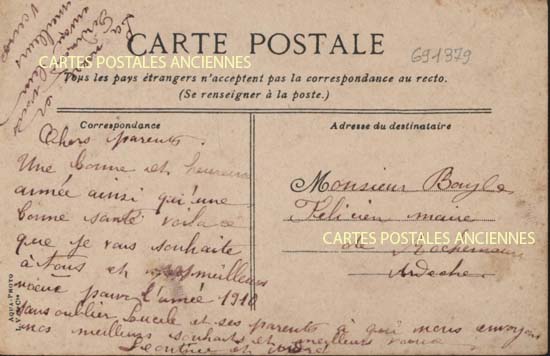 691379
CARTE POSTALE
CARTES POSTALES ANCIENNES
Tous les pays étrangers n'acceptent pas la correspondance au recto.
(Se renseigner à la poste.)
Correspondance
Chers parents.
Une bonne et heureuse
année ainsi qu'une
bonne santé voila ce
que je vous souhaite
à tous et meilleurs
voeux pour l'année 1918
sans oublier Lucile et ses parents à qui nous envoyons
nos meilleurs souhaits et meilleurs voeux
Adresse du destinataire
Monsieur Bayle
Félicien maire
CARTES POSTALES ANCIENNES
de Rochemaure
Ardèche
AQUA-PHOTO